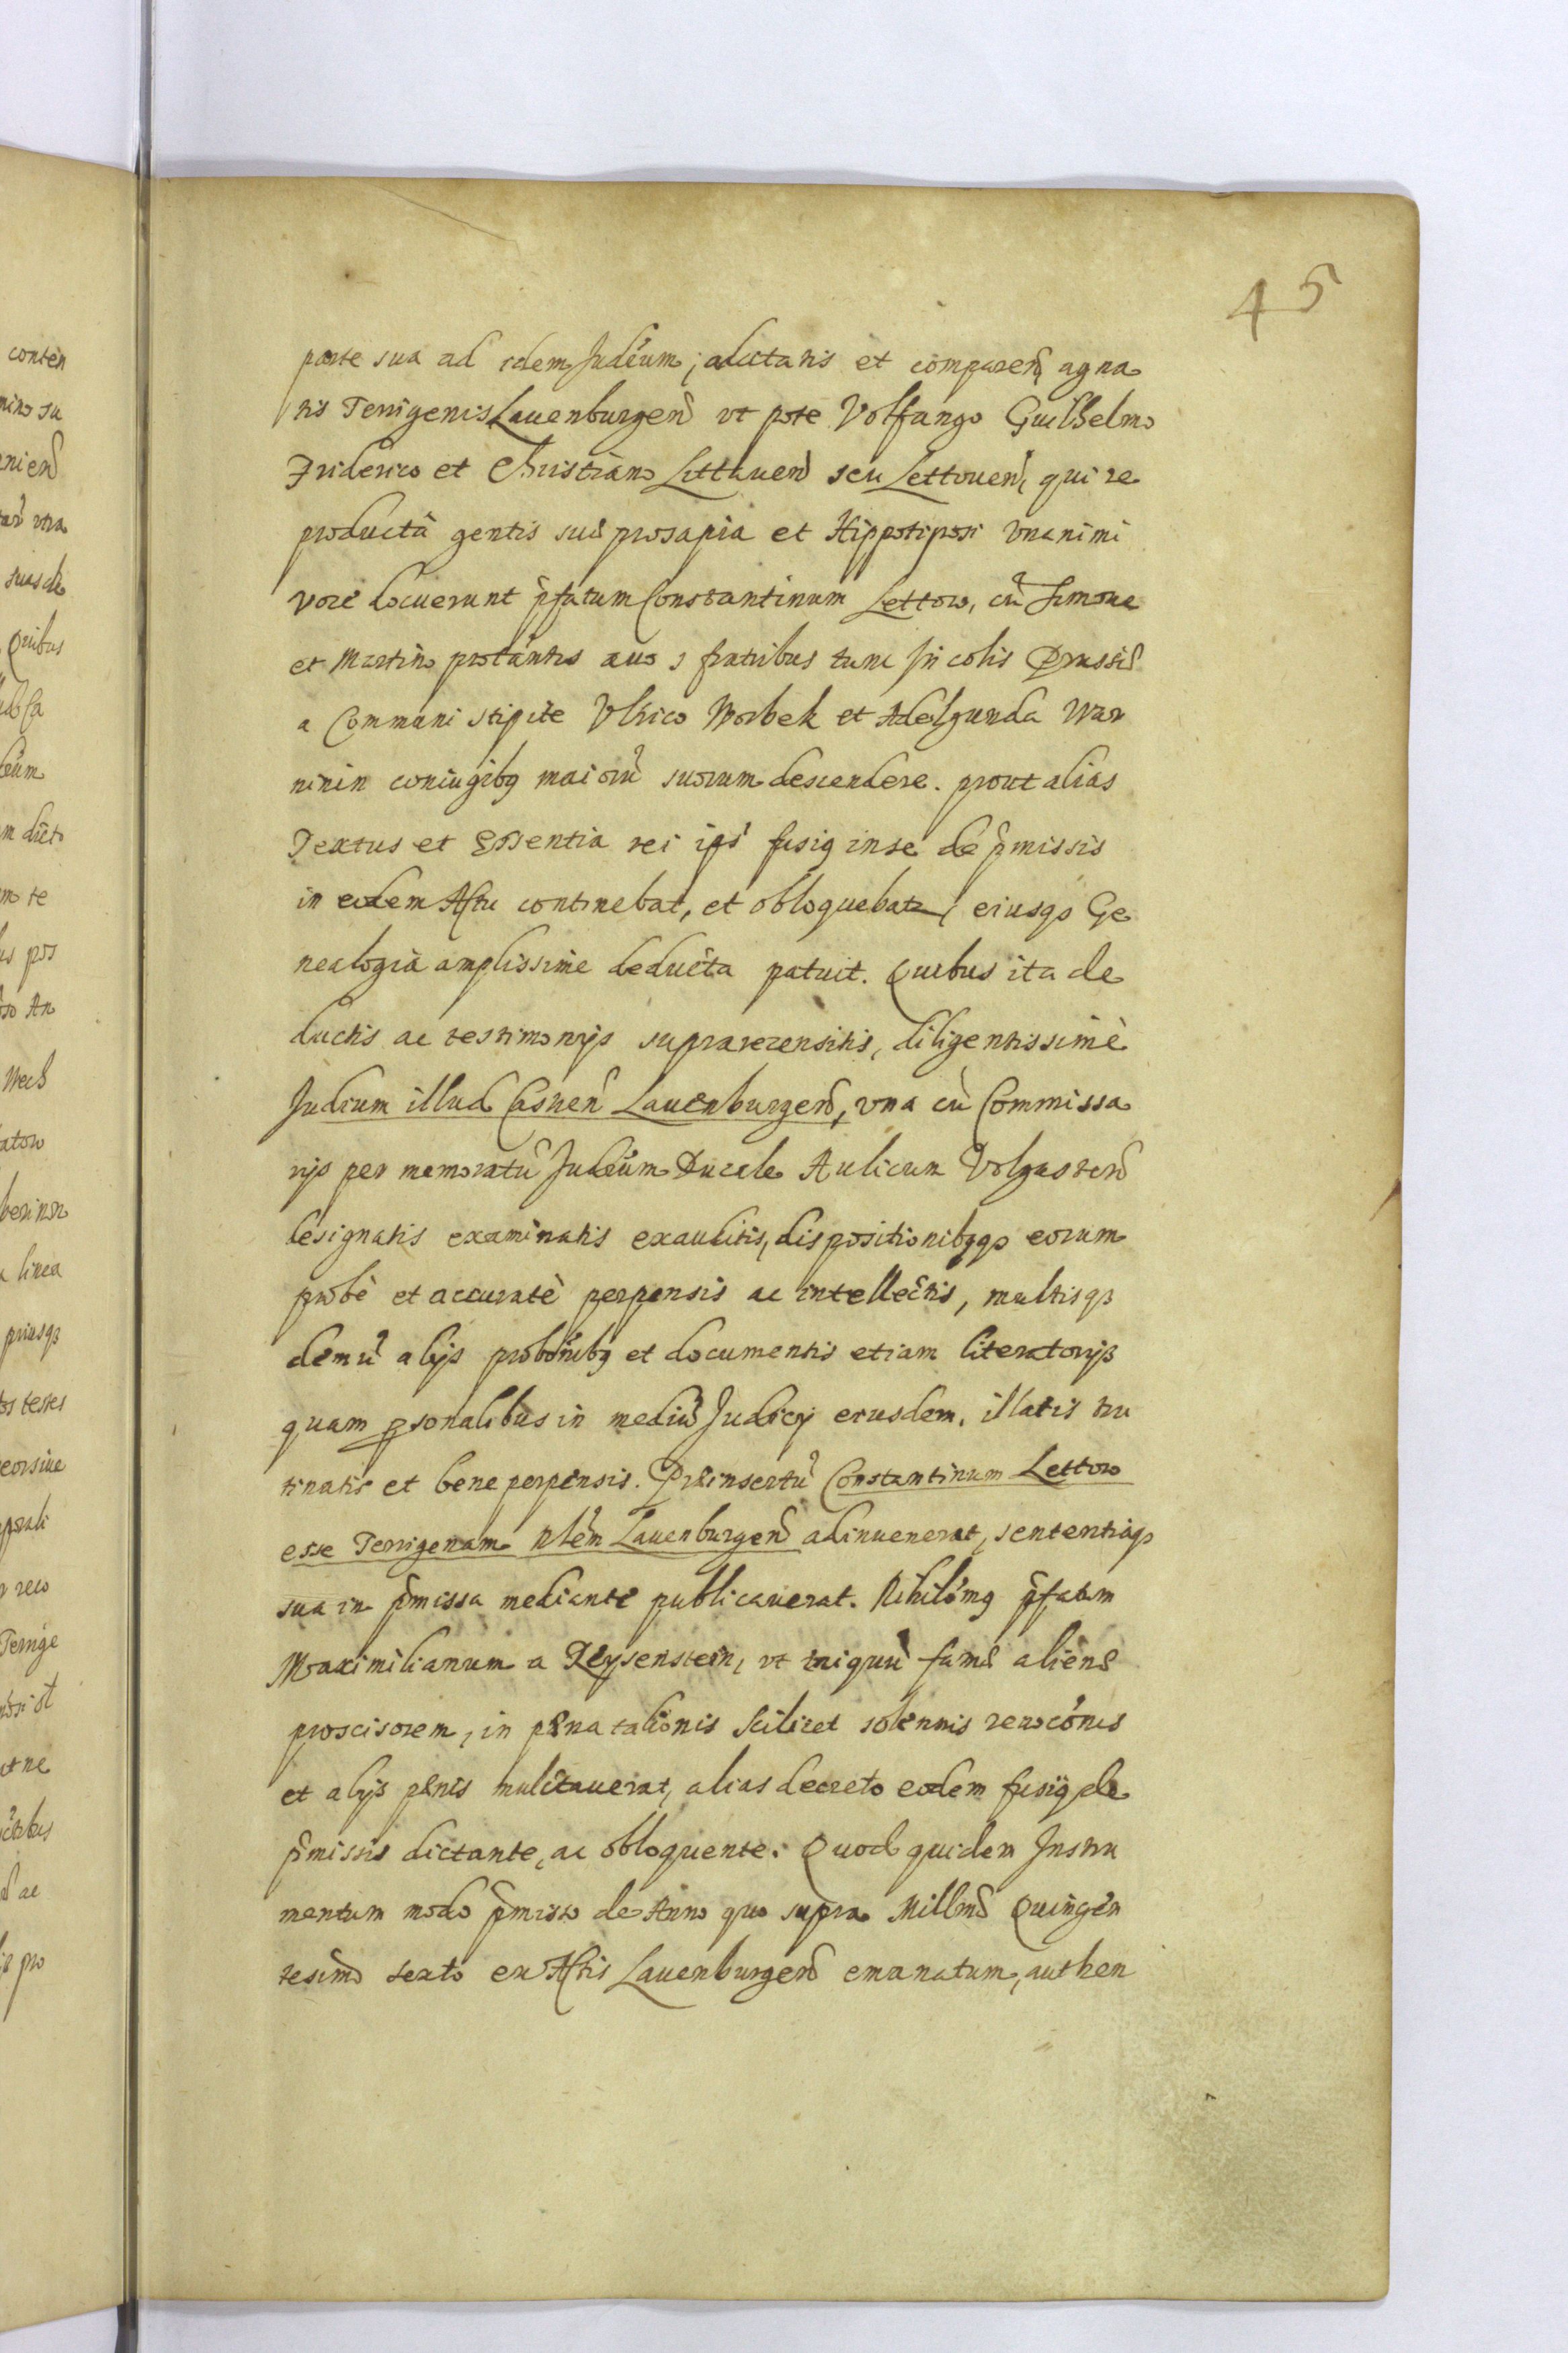 45
parte sua ad idem Judĉum, adcitatis et comparen̄ agna
tis Terrigenis Lauenburgen̄ vt pote Volfango Guilhelmo
Friderico et Christiano Littauen̄ seu Lettouen̄, qui re
productâ gentis suæ prosapia et Hippotiposi vnanimi
voce docuerunt p̄fatum Constantinum Lettow, cū Simone
et Martino fratribus tunc Incolis Prussiæ
a Communi stipite Vlrico Worbek et Adelgunda War
ninin coniugibȝ maiorū suorum descendere. prout alias
Textus et Essentia rei ipsiȝ fusiȝ in se de p̄missis
in eodem Actu continebat, et obloquebatur, eiusqȝ Ge
nealogia amplissime deducta patuit. Quibus ita de
ductis ac testimonijs suprarecensitis, diligentissimè
Judicium illud Castren̄ Lauenburgen̄, vna cū Commissa
rijs per memoratū Judĉium Ducale Aulicum Volgasten̄
designatis examinatis exauditis, dispositionibȝqȝ eorum
probè et accuratè perpensis ac intellectis, multisqȝ
demū alijs probōnibȝ et documentis etiam literatorijs
quam p̱sonalibus in mediū Judicij eiusdem, illatis tru
tinatis et bene perpensis. Præinsertū Constantinum Lettow
esse Terrigenam Nb̄lem Lauenburgen̄ adinuenerat, sententiaqȝ
sua in p̄missa mediante publicauerat. Nihilomȝ p̄fatum
Maximilianum a Reysenstein, vt iniquū famæ alienæ
proscisorem, in pæna talionis scilicet solennis reuocōnis
et alijs pænis mulctauerat, alias decreto eodem fusiȝ de
p̄missis dictante, ac obloquente. Quod quidem Instru
mentum modo p̄misso de Anno quo supra Millmō Quingen
tesimo sexto ex Actis Lauenburgen̄ emanatum, authen